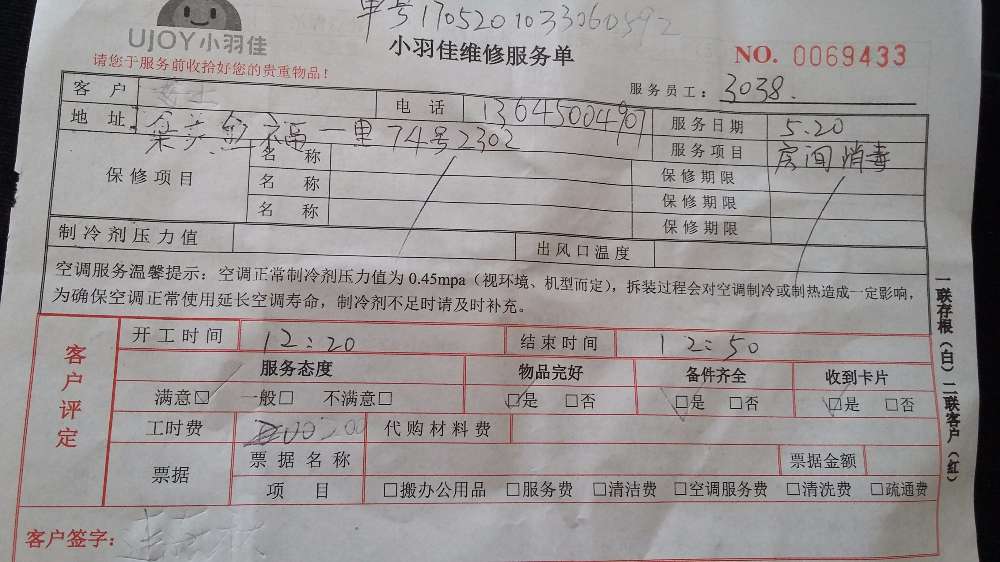 单号170520103306059 2
UJOY小羽佳
小羽佳维修服务单
NO. 0069433
请您于服务前收拾好您的贵重物品！
服务员工： 3038.
客 户
电 话 13645004907
服务日期 5.20
地 址 集美 幸福一里74号2302
服务项目 房间消毒
保修项目
名 称
保修期限
名 称
保修期限
名 称
保修期限
制冷剂压力值
出风口温度
空调服务温馨提示：空调正常制冷剂压力值为 0.45mpa（视环境、机型而定），拆装过程会对空调制冷或制热造成一定影响，
为确保空调正常使用延长空调寿命，制冷剂不足时请及时补充。
客户评定
开工时间 12:20
结束时间 12:50
服务态度
物品完好
备件齐全
收到卡片
满意☑ 一般□ 不满意□
☑是 □否
☑是 □否
☑是 □否
工时费 200
代购材料费
票据
票据名称
票据金额
项 目
□搬办公用品 □服务费 □清洁费 □空调服务费 □清洗费 □疏通费
客户签字：
一联存根（白）二联客户（红）